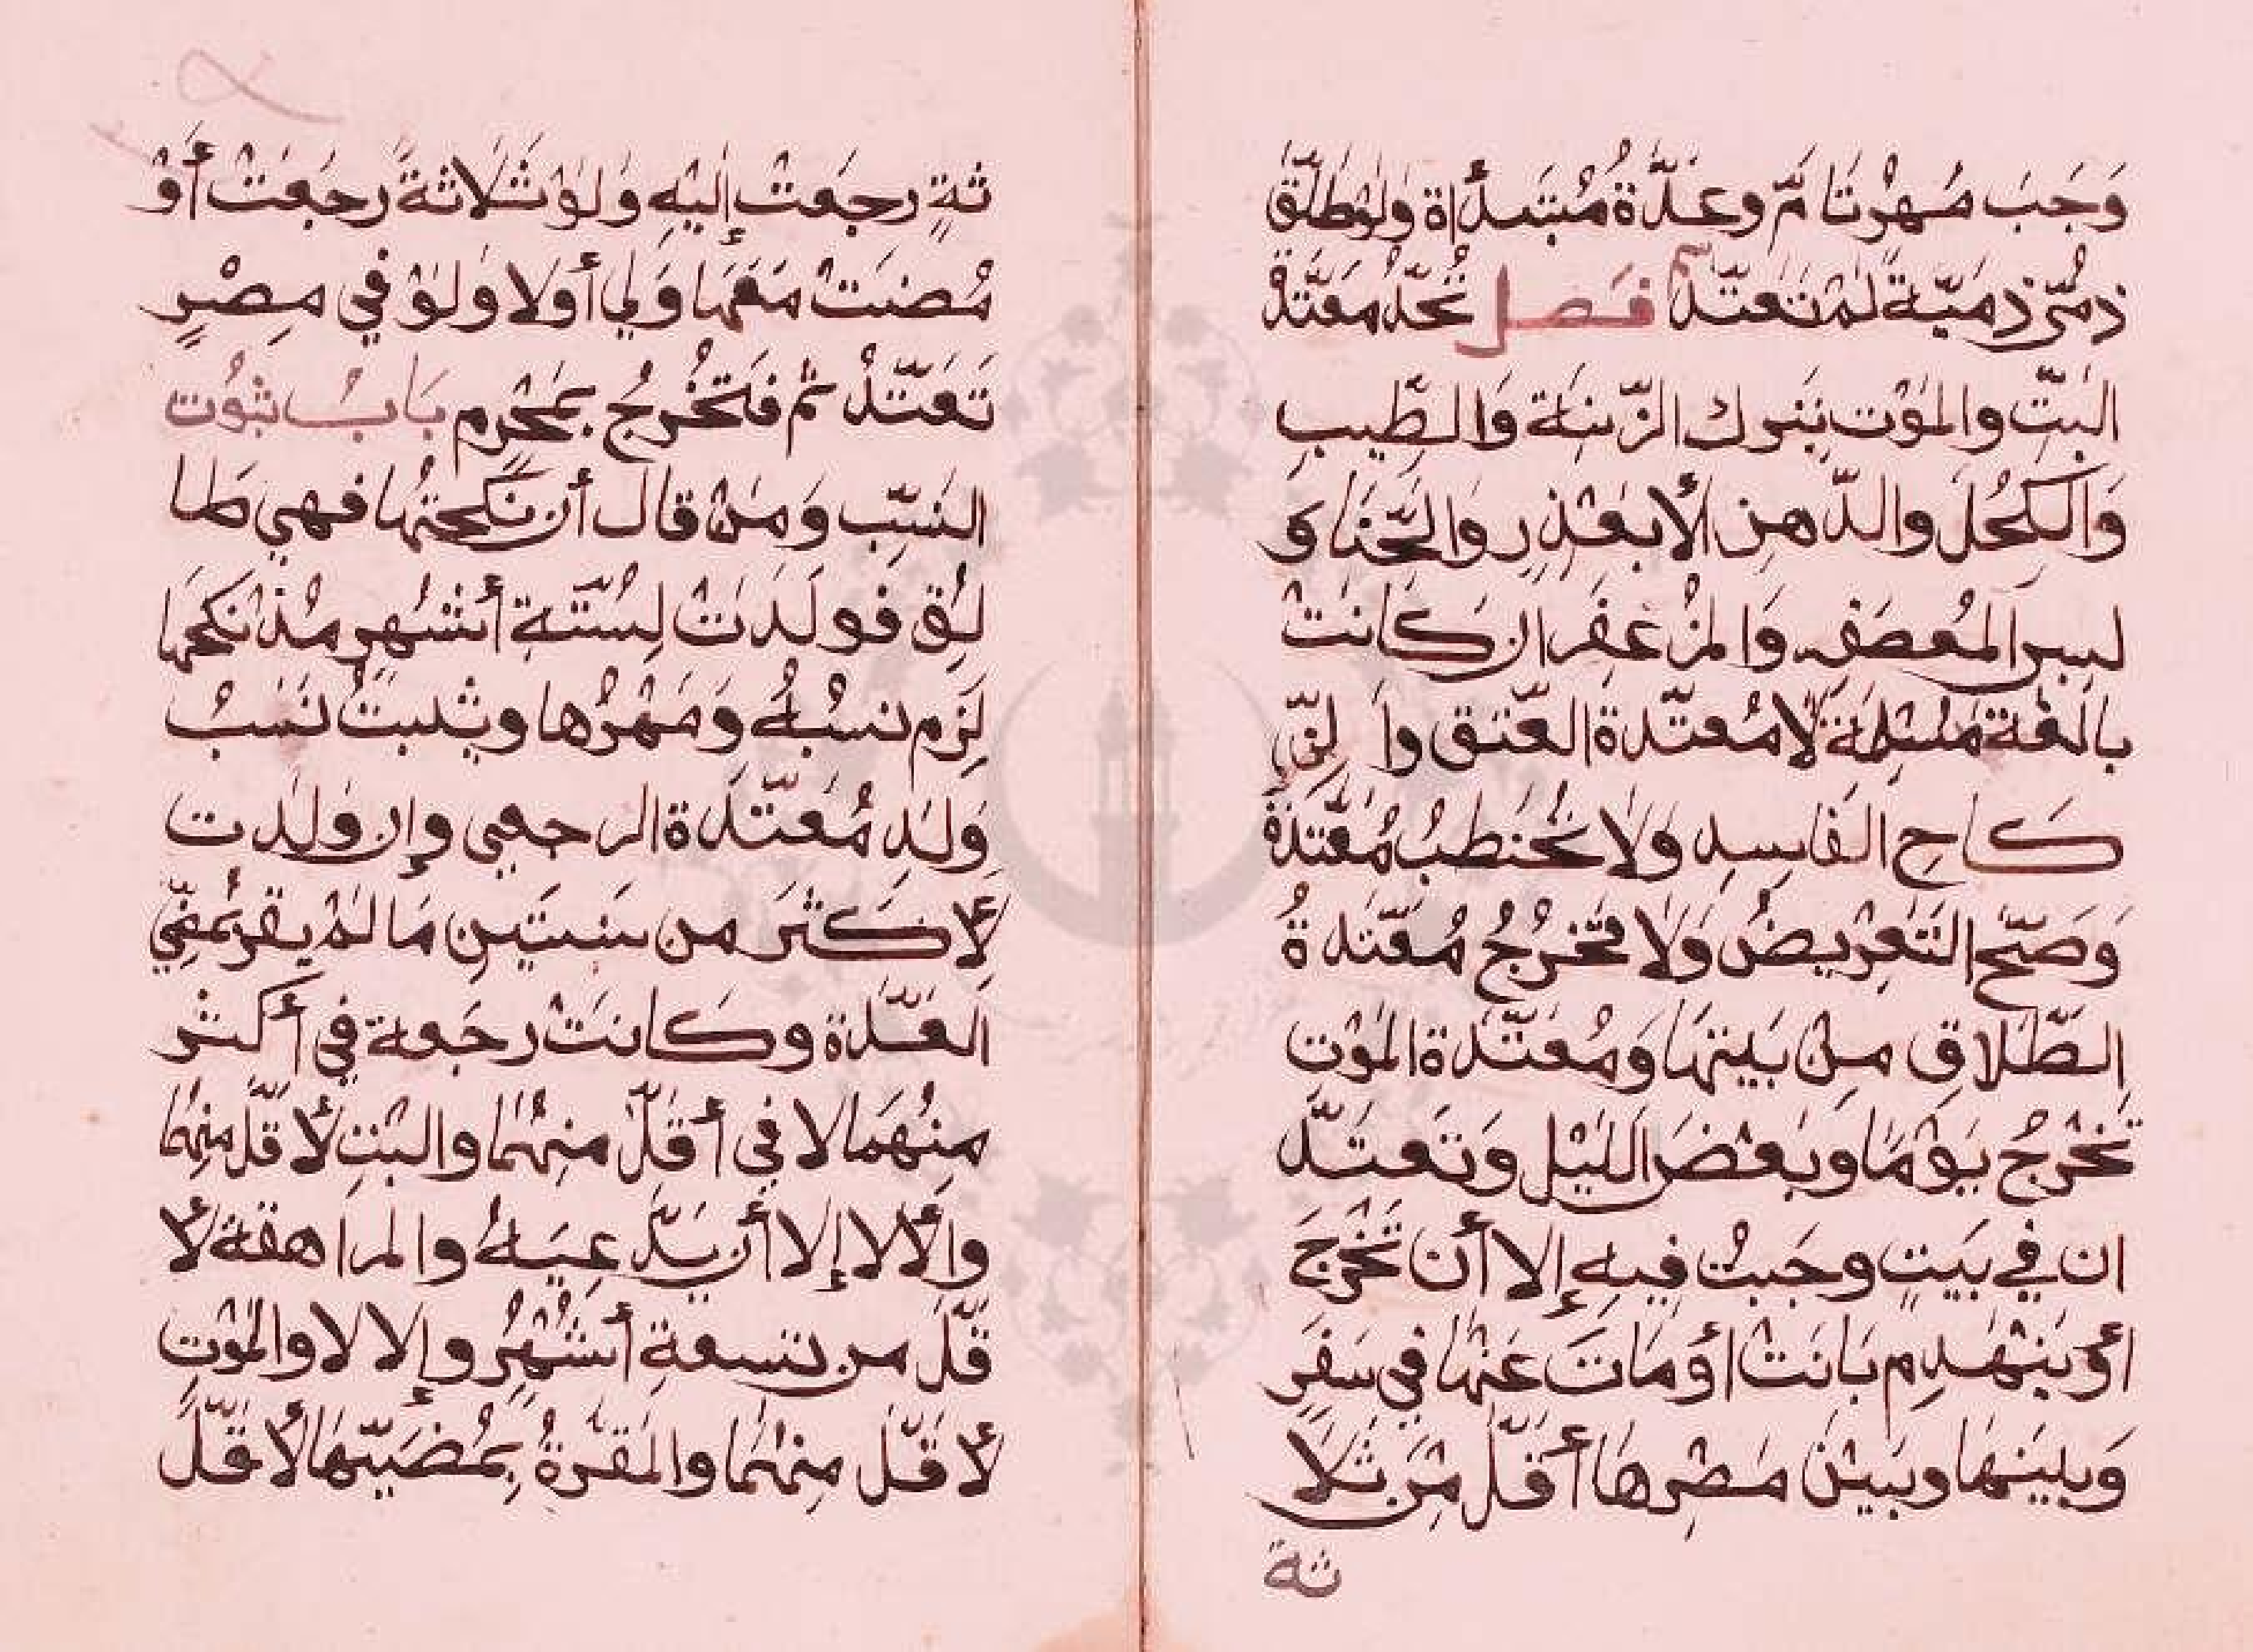 وَجَبَ مَهْرٌ تَامٌّ وعدّةٌ مُبْتَدأة ولوْ طلّق
ذمّيّ ذمّيّةً لمْ تَعْتدّ فَصل تُحدّ مُعَتَّدة
البَتّ والموْت بتَرك الزّينَة وَالطِّيبِ
وَالكُحْلَ والدّهن إلا بعُذرٍ وَالحنّا و
لبسِ المُعصفر وَالمُزعفَر إن كَانَتْ
بالغةً مُسْلِمَةً لا مُعتَدّة العَتق وا لنّ
كاح الفاسِدِ وَلا تُخطبُ مُعْتَدّةٌ
وَصَحّ التَّعرِيضُ وَلا تخْرُجُ مُعْتدّةُ
الطّلاقِ مِنْ بَيتهَا وَمُعتَدّةُ الموْتِ
تَخْرُجُ يَوْمًا وبَعْضَ اللّيْلِ وَتَعتَدّ
ان في بَيتٍ وجَبتْ فِيهِ إلا أن تَخْرَجَ
أوْ يَنْهدِم بَانَتْ أوْ مَاتَ عَنْهَا في سَفَرٍ
وَبينَها وبَيْنَ مِصْرِهَا أقلّ مِنْ ثَلا
ثة
ثةٍ رجعَتْ إليْهِ وَلوْ ثَلاثةً رجَعَتْ أوْ
مَضتْ مَعَهَا وَلي أولا وَلوْ في مِصْرٍ
تَعْتَدّ ثمّ فَتخْرُجُ بمَحْرَم بَابُ ثبُوت
النسَب وَمَنْ قال أن نكحتُها فهي طا
لِق فولَدَتْ لِستّةِ أشْهرٍ مُذْ نَكحَها
لَزِم نسَبُهُ وَمَهْرُها ويثبتُ نَسَبُ
وَلدِ مُعتَدّة الرجعي وإن وَلدت
لأكثَر من سَنتَينِ مَا لمْ يقرّ بمُضيّ
العدّة وكانتْ رجَعة في أكثر
مِنهُمَا لا في أقلّ منهُمَا والبَتِ لأقلّ منهُمَا
وإلا لا إلا أن يَدّعِيَهُ والمراهقة لأ
قلّ من تسعةِ أشهُرٍ وإلا لا والموْتِ
لأقلّ مِنهُمَا والمقرّةُ بِمُضيّهَا لأقلّ